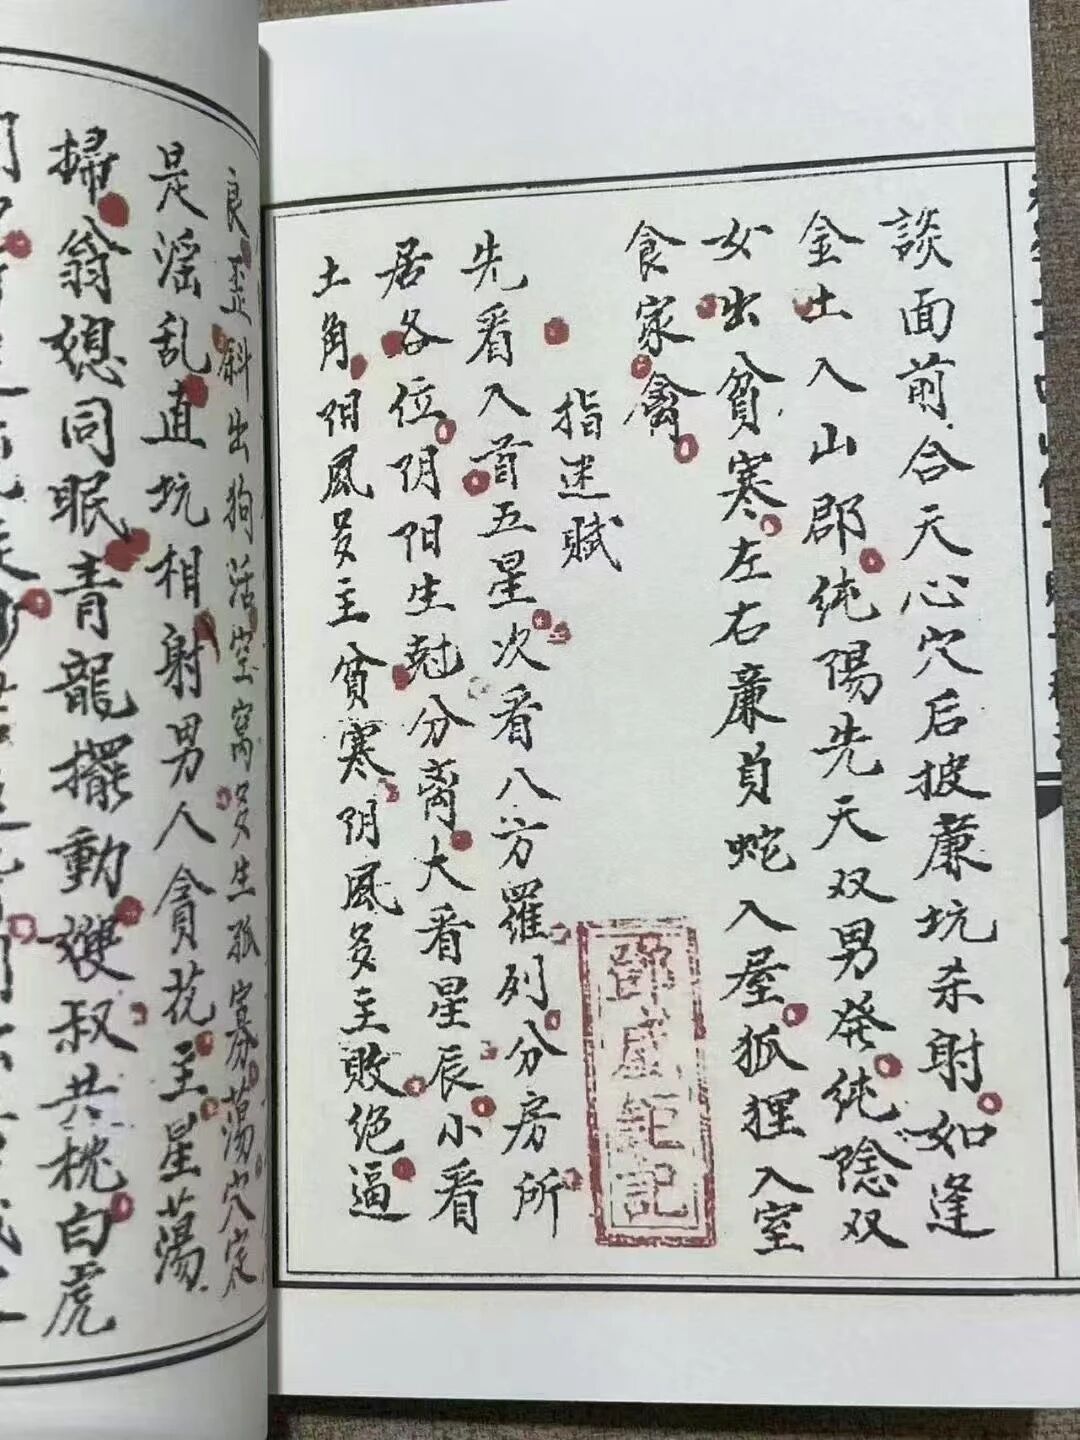 談面前合天心穴后披蔍坑杀射如逢
金土入山郡纯陽先天双男発纯陰双
女出貧寒左右蔍貟蛇入屋狐狸入室
食家禽
指迷賦
先看入首五星次看八方羅列分房所
居各位阴阳生尅分离大看星辰小看
土角阳風多主貧寒阴風多主败绝逼
良歪斜出狗活空窝多生孤寡蕩穴定
是淫乱直坑相射男人貪花主星蕩
掃翁媳同眠青龍擺動嫂叔共枕白虎